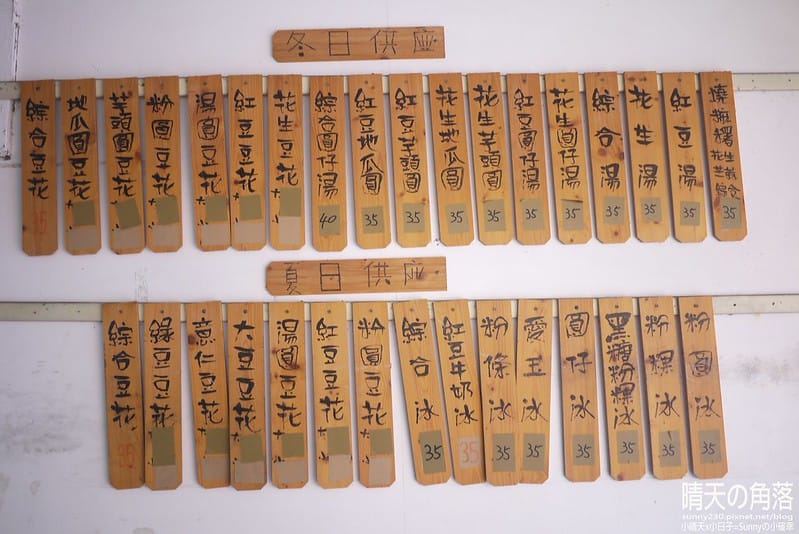 冬日供應
綜合豆花 35
地瓜圓豆花
芋頭圓豆花
粉圓豆花
湯圓豆花 大 小
紅豆豆花 大 小
花生豆花 大 小
綜合圓仔湯 40
紅豆地瓜圓 35
紅豆芋頭圓 35
花生地瓜圓 35
花生芋頭圓 35
紅豆圓仔湯 35
花生圓仔湯 35
綜合湯 35
花生湯 35
紅豆湯 35
燒麻糬 花生 芝麻 35
夏日供應
綜合豆花 35
綠豆豆花 大 小
薏仁豆花 大
大豆豆花 大 小
湯圓豆花 大 小
紅豆豆花 大 小
粉圓豆花 大 小
綜合冰 35
紅豆牛奶冰 35
粉條冰 35
愛玉冰 35
圓仔冰 35
黑糖粉粿冰 35
粉粿冰 35
粉圓冰 35
晴天の角落
sunny230.pixnet.net/blog
小晴天x小日子=Sunnyの小確幸